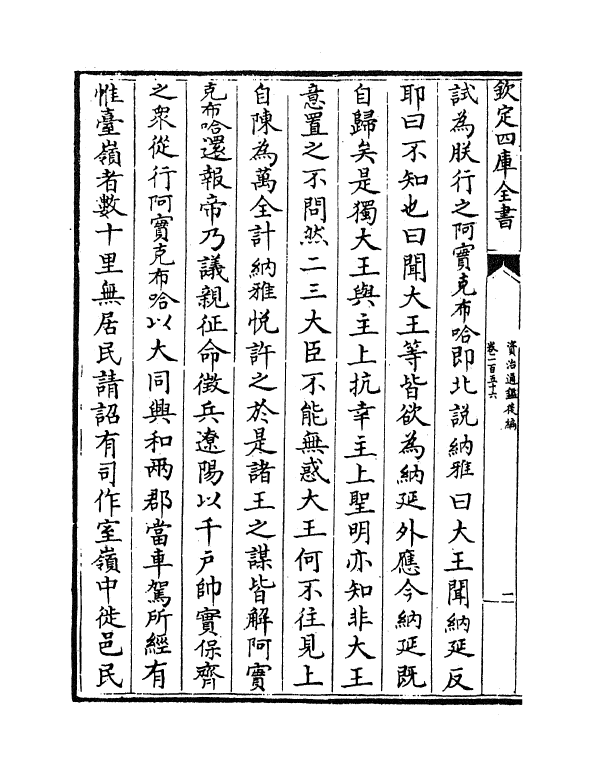 欽定四庫全書
資治通鑑後編
卷一百五十六
一
試為朕行之阿實克布哈即北說納雅曰大王聞納延反
耶曰不知也曰聞大王等皆欲為納延外應今納延既
自歸矣是獨大王與主上抗幸主上聖明亦知非大王
意置之不問然二三大臣不能無惑大王何不往見上
自陳為萬全計納雅悦許之於是諸王之謀皆解阿實
克布哈還報帝乃議親征命徵兵遼陽以千户帥實保齊
之衆從行阿實克布哈以大同興和兩郡當車駕所經有
惟臺嶺者數十里無居民請詔有司作室嶺中徙邑民